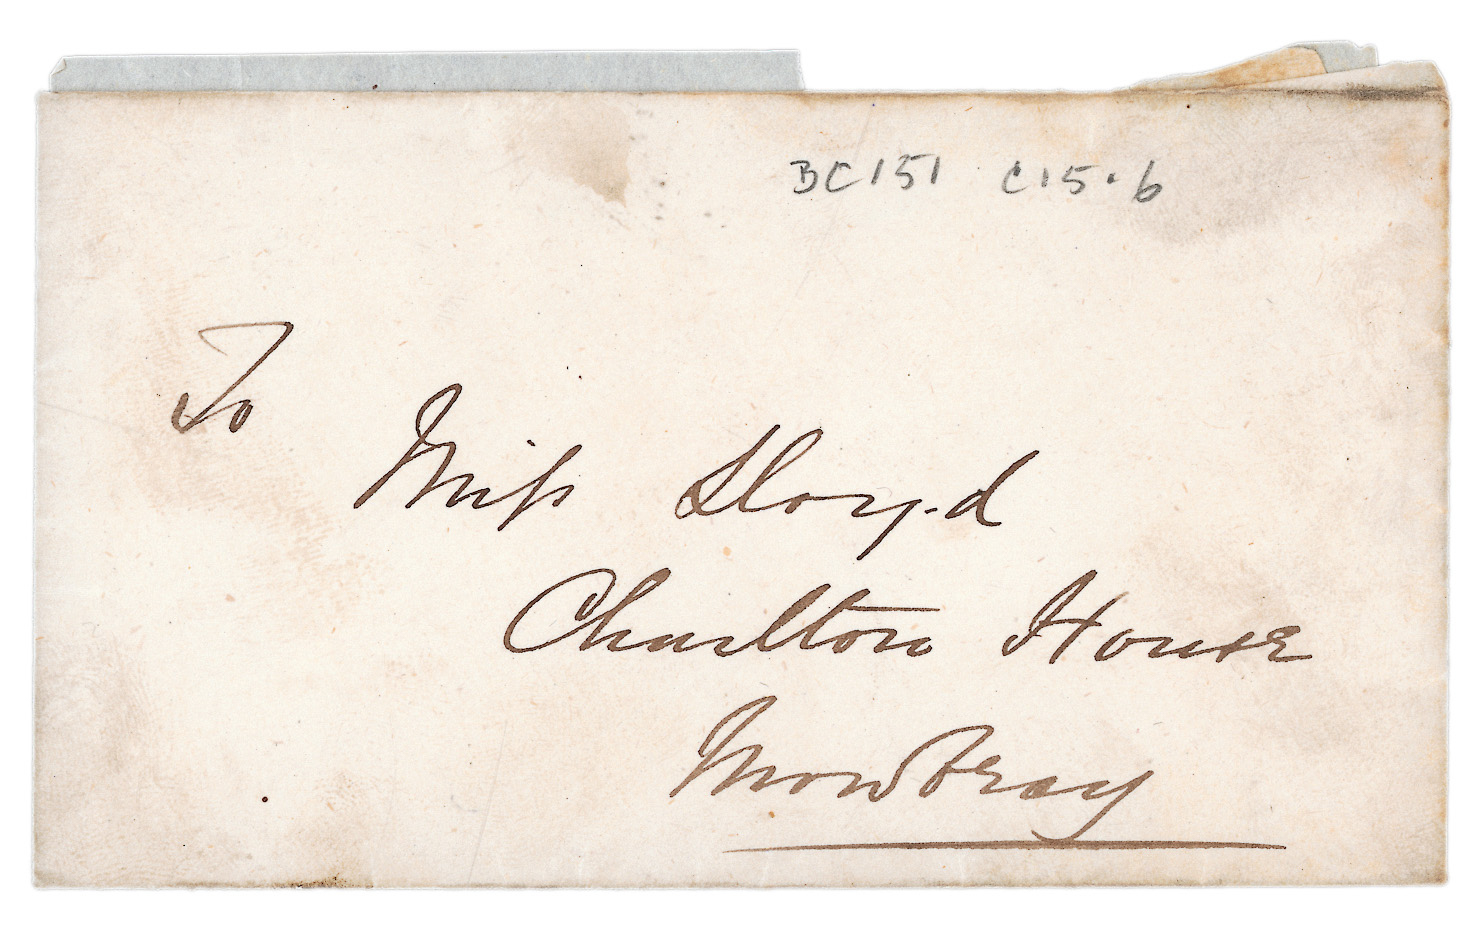 BC151 C15.6
To
Miss Lloyd
Charlton House
Mowbray